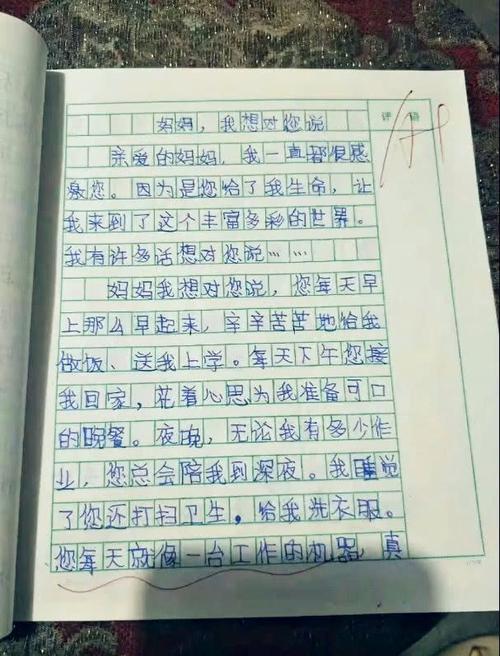 评语
妈妈，我想对您说
亲爱的妈妈，我一直都很感
激您。因为是您给了我生命，让
我来到了这个丰富多彩的世界。
我有许多话想对您说……
妈妈我想对您说，您每天早
上那么早起来，辛辛苦苦地给我
做饭、送我上学。每天下午您接
我回家，花着心思为我准备可口
的晚餐。夜晚，无论我有多少作
业，您总会陪我到深夜。我睡觉
了您还打扫卫生，给我洗衣服。
您每天就像一台工作的机器，真